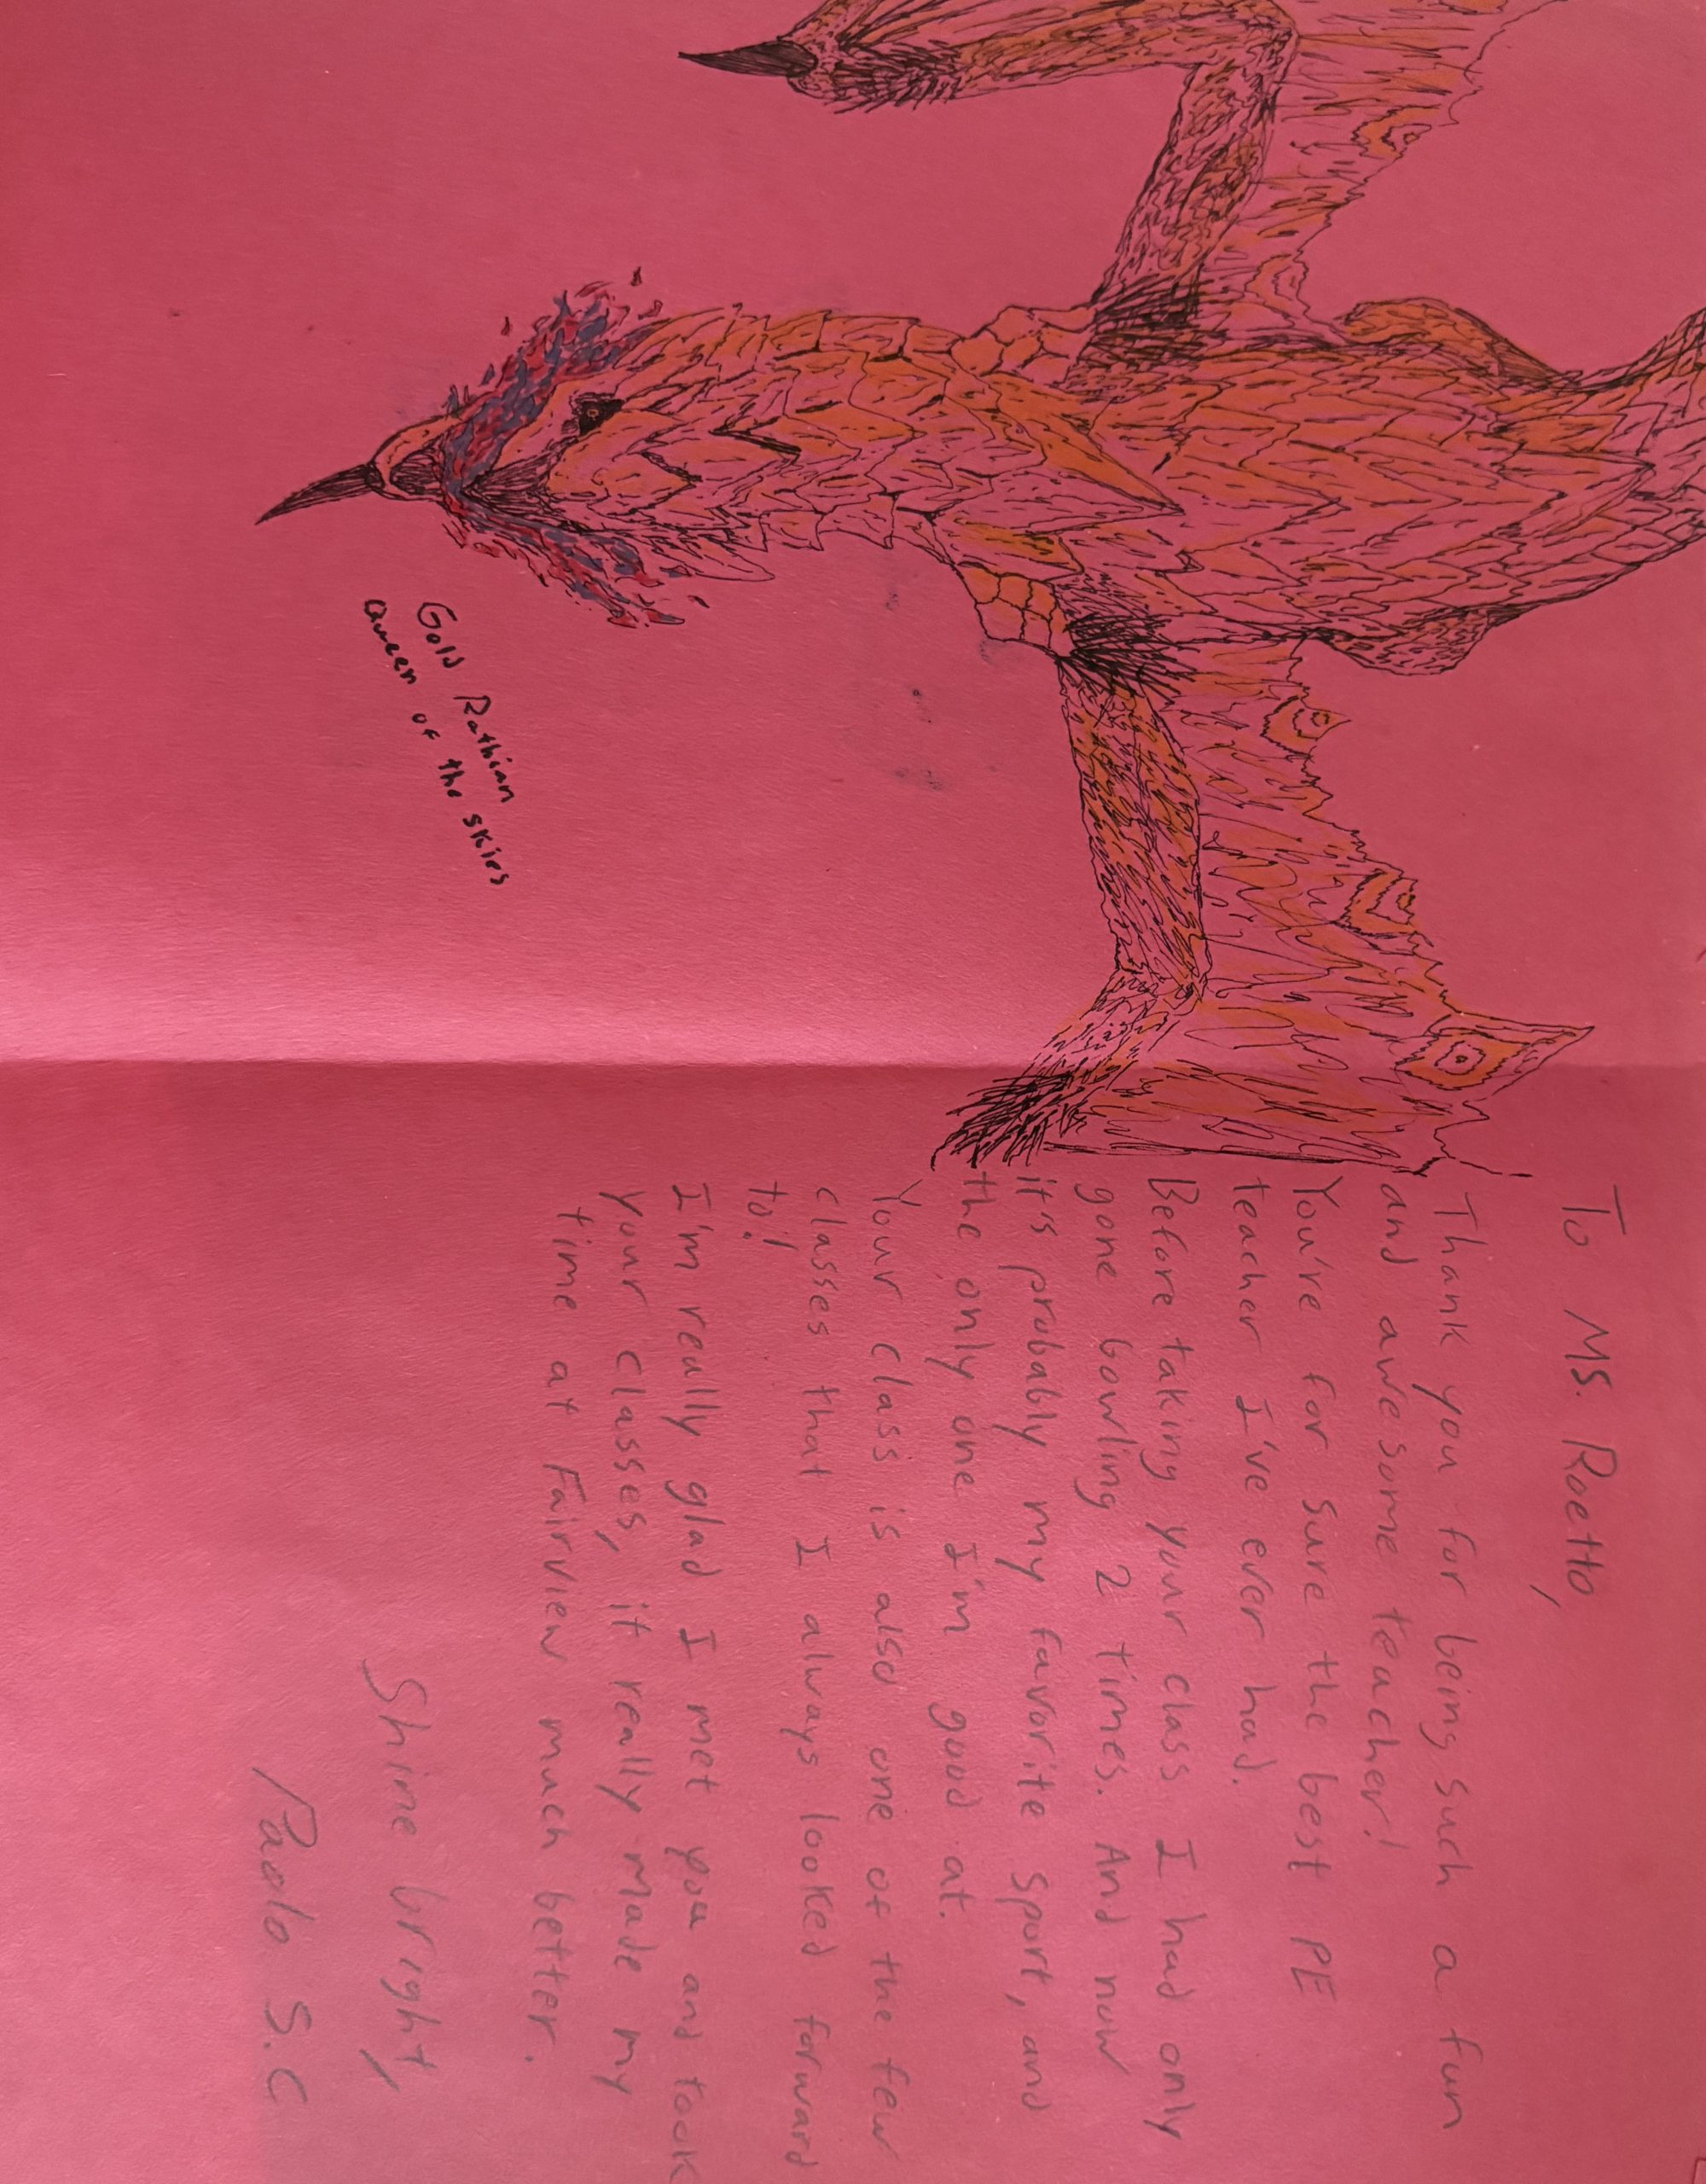 Gold Rathian
Queen of the skies
To Ms. Roetto,
Thank you for being such a fun
and awesome teacher!
You're for sure the best PE
teacher I've ever had.
Before taking your class I had only
gone bowling 2 times. And now
it's probably my favorite sport, and
the only one I'm good at.
Your class is also one of the few
classes that I always looked forward
to!
I'm really glad I met you and took
your classes, it really made my
time at Fairview much better.
Shine bright,
Paolo S.C